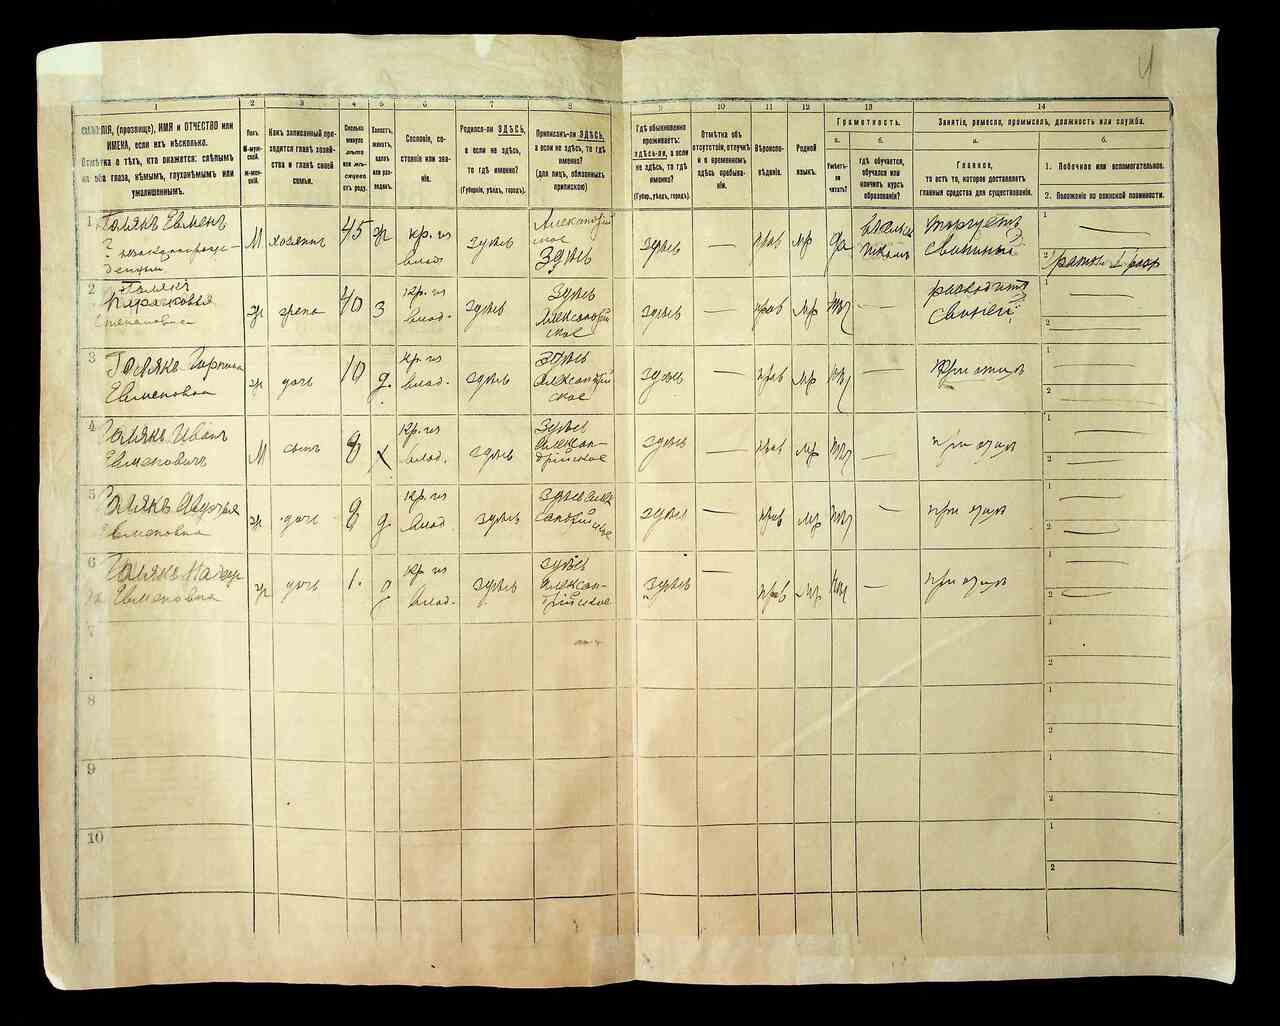 1 2 3 4 5 6 7 8 9 10 11 12 13 14
ФАМИЛІЯ, (прозвище), ИМЯ и ОТЧЕСТВО или
ИМЕНА, если ихъ нѣсколько.
Отмѣтка о тѣхъ, кто окажется: слѣпымъ
на оба глаза, нѣмымъ, глухонѣмымъ или
умалишеннымъ.
Полъ.
М-мужской.
Ж-женскій.
Какъ записанный приходится
главѣ хозяйства
и главѣ своей
семьи.
Сколько
минуло
лѣтъ
или мѣсяцевъ
отъ роду.
Холостъ,
женатъ,
вдовъ
или разведенъ.
Сословіе, состояніе
или званіе.
Родился-ли ЗДѢСЬ,
а если не здѣсь,
то гдѣ именно?
(Губернія, уѣздъ, городъ).
Приписанъ-ли ЗДѢСЬ,
а если не здѣсь, то гдѣ
именно?
(для лицъ, обязанныхъ
припискою)
Гдѣ обыкновенно
проживаетъ:
здѣсь-ли, а если
не здѣсь, то гдѣ
именно?
(Губер., уѣздъ, городъ).
Отмѣтка объ
отсутствіи, отлучкѣ
и о временномъ
здѣсь пребываніи.
Вѣроисповѣданіе.
Родной
языкъ.
Грамотность.
а.
Умѣетъ-ли
читать?
б.
Гдѣ обучается,
обучался или
кончилъ курсъ
образованія?
Занятіе, ремесло, промыселъ, должность или служба.
а.
Главное,
то есть то, которое доставляетъ
главныя средства для существованія.
б.
1. Побочное или вспомогательное.
2. Положеніе по воинской повинности.
1 Голякъ Евменъ
М хозяинъ 45 ж кр. из влад. здѣсь Александрійское здѣсь
здѣсь — прав мр да торгуетъ свиньями
1 —
2 ратн
2 Голякъ Параковья
Степановна
ж жена 40 з кр. из влад. здѣсь здѣсь Александрійское
здѣсь — прав мр разводитъ свиней
1 —
2
3 Голякъ
Евменовна
ж дочь 10 д. кр. из влад. здѣсь здѣсь Александрійское
здѣсь — прав мр — при отцѣ
1 —
2 —
4 Голякъ Иванъ
Евменовичъ
М сынъ 8 х кр. из влад. здѣсь здѣсь Александрійское
здѣсь — прав мр — при отцѣ
1 —
2 —
5 Голякъ
Евменовна
ж дочь д. кр. из влад. здѣсь здѣсь Александрійское
здѣсь — прав мр — при отцѣ
1 —
2 —
6 Голякъ
Евменовна
ж дочь 1. д кр из влад. здѣсь здѣсь Александрійское
здѣсь — прав мр — при отцѣ
1 —
2 —
7
1
2
8
1
2
9
1
2
10
1
2